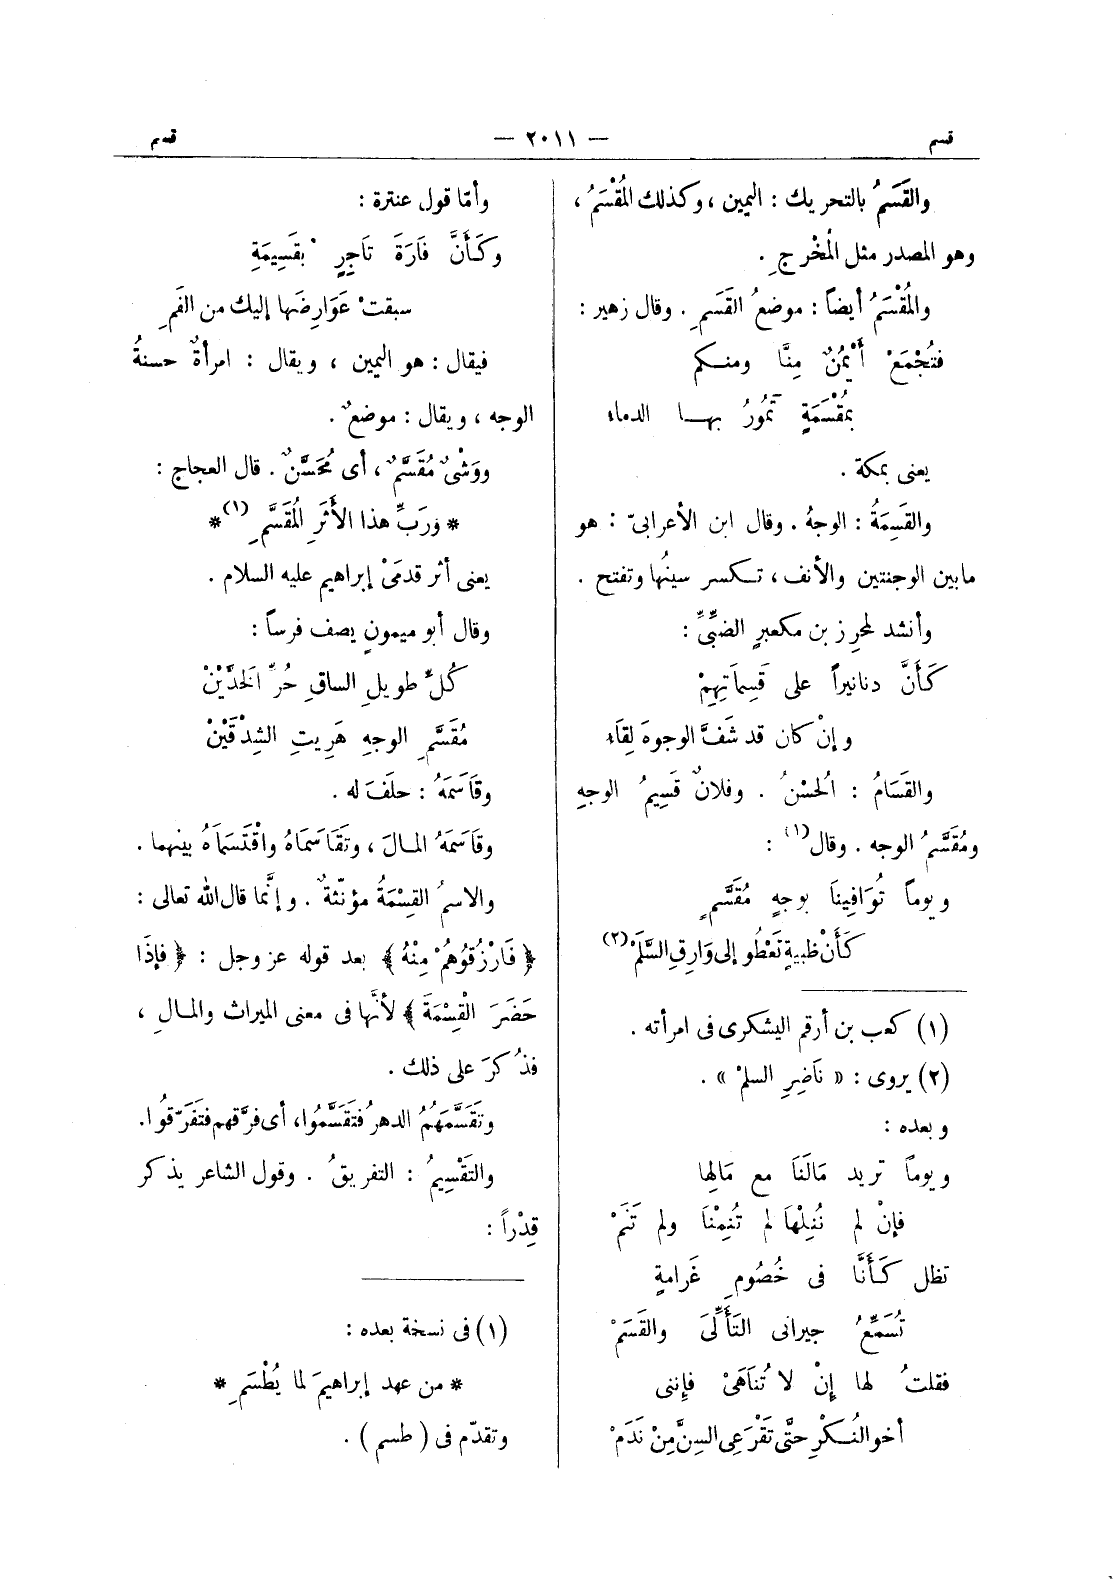 قسم
— ٢٠١١ —
قسم
والقَسَمُ بالتحريك : اليمين ، وكذلك المُقْسَمُ ،
وهو المصدر مثل المُخْرجِ .
والمُقْسَمُ أيضاً : موضعُ القَسَمِ . وقال زهير :
فتُجْمَعْ أَيْمُنٌ مِنَّا ومنكم
بمُقْسَمَةٍ تَمُورُ بها الدماء
يعنى بمكة .
والقَسِمَةُ : الوجهُ . وقال ابن الأعرابىّ : هو
مابين الوجنتين والأنف ، تكسر سينُها وتفتح .
وأنشد لمحرِز بن مكعبرٍ الضبِّىِّ :
كَأَنَّ دنانيراً على قَسِمَاتِهِمْ
وإنْ كان قد شَفَّ الوجوهَ لِقَاء
والقَسَامُ : الحُسْنُ . وفلانٌ قَسِيمُ الوجهِ
ومُقَسَّمُ الوجه . وقال(١) :
ويوماً تُوَافِينَا بوجهٍ مُقَسَّمٍ
كَأَنْ ظبيةٍ تَعْطُو إلى وَارِقِ السَّلَمْ(٢)
(١) كعب بن أرقم اليشكرى فى امرأته .
(٢) يروى : « نَاضِرِ السلمْ » .
وبعده :
ويوماً تريد مَالَنَا مع مَالِها
فإنْ لم نُنِلْهَا لم تُنِمْنَا ولم تَنَمْ
تظل كَأَنَّا فى خُصُومِ غَرامةٍ
تُسَمِّعُ جيرانى التَأَلِّىَ والقَسَمْ
فقلتُ لها إِنْ لا تُنَاهَىْ فإننى
أخو النُكْرِ حتَّى تَقْرَعِى السِنَّ مِنْ نَدَمْ
وأمّا قول عنترة :
وكَأَنَّ فَارَةَ تَاجِرٍ بقَسِيمَةٍ
سبقتْ عَوَارِضَها إليك من الفَمِ
فيقال : هو اليمين ، ويقال : امرأةٌ حسنةُ
الوجه ، ويقال : موضعٌ .
ووَشْىٌ مُقَسَّمٌ ، أى مُحَسَّنٌ . قال العجاج :
* ورَبِّ هذا الأَثَرِ المُقَسَّمِ (١) *
يعنى أثر قدمَىْ إبراهيم عليه السلام .
وقال أبو ميمونٍ يصف فرساً :
كُلِّ طويلِ الساقِ حُرِّ الخَدَّيْنْ
مُقَسَّمِ الوجهِ هَرِيتِ الشِدْقَيْنْ
وقَاسَمَهُ : حلَفَ له .
وقَاسَمَهُ المالَ ، وتَقَاسَمَاهُ واقْتَسَمَاهُ بينهما .
والاسمُ القِسْمَةُ مؤنّثةٌ . وإنَّما قال الله تعالى :
﴿ فَارْزُقُوهُمْ مِنْهُ ﴾ بعد قوله عز وجل : ﴿ فإِذَا
حَضَرَ القِسْمَةَ ﴾ لأنَّها فى معنى الميراث والمالِ ،
فذُكرَ على ذلك .
وتَقَسَّمَهُمُ الدهرُ فتَقَسَّمُوا، أى فرَّقهم فتَفَرَّقُوا.
والتَقْسِيمُ : التفريقُ . وقول الشاعر يذكر
قِدْراً :
(١) فى نسخة بعده :
* من عهد إبراهيمَ لما يُطْسَمِ *
وتقدّم فى ( طسم ) .